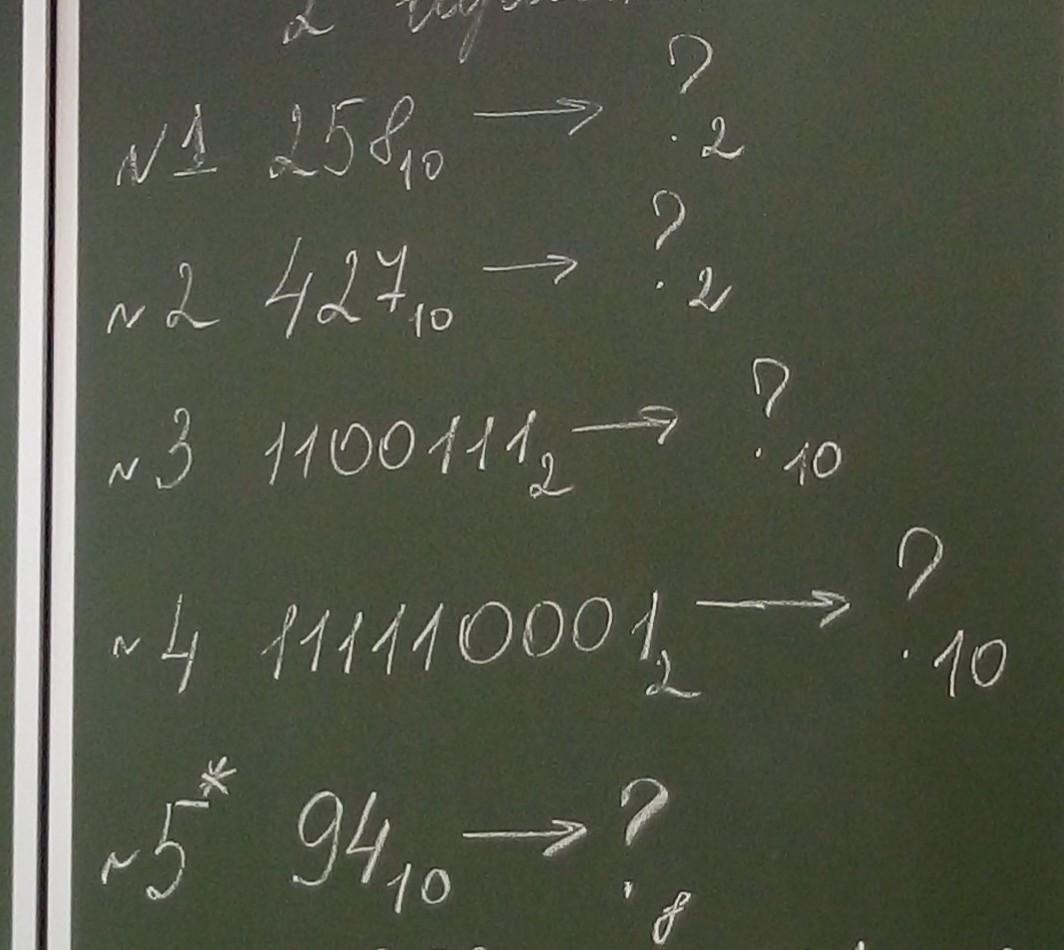 №1 258₁₀ → ?₂
№2 427₁₀ → ?₂
№3 1100111₂ → ?₁₀
№4 111110001₂ → ?₁₀
№5* 94₁₀ → ?₈